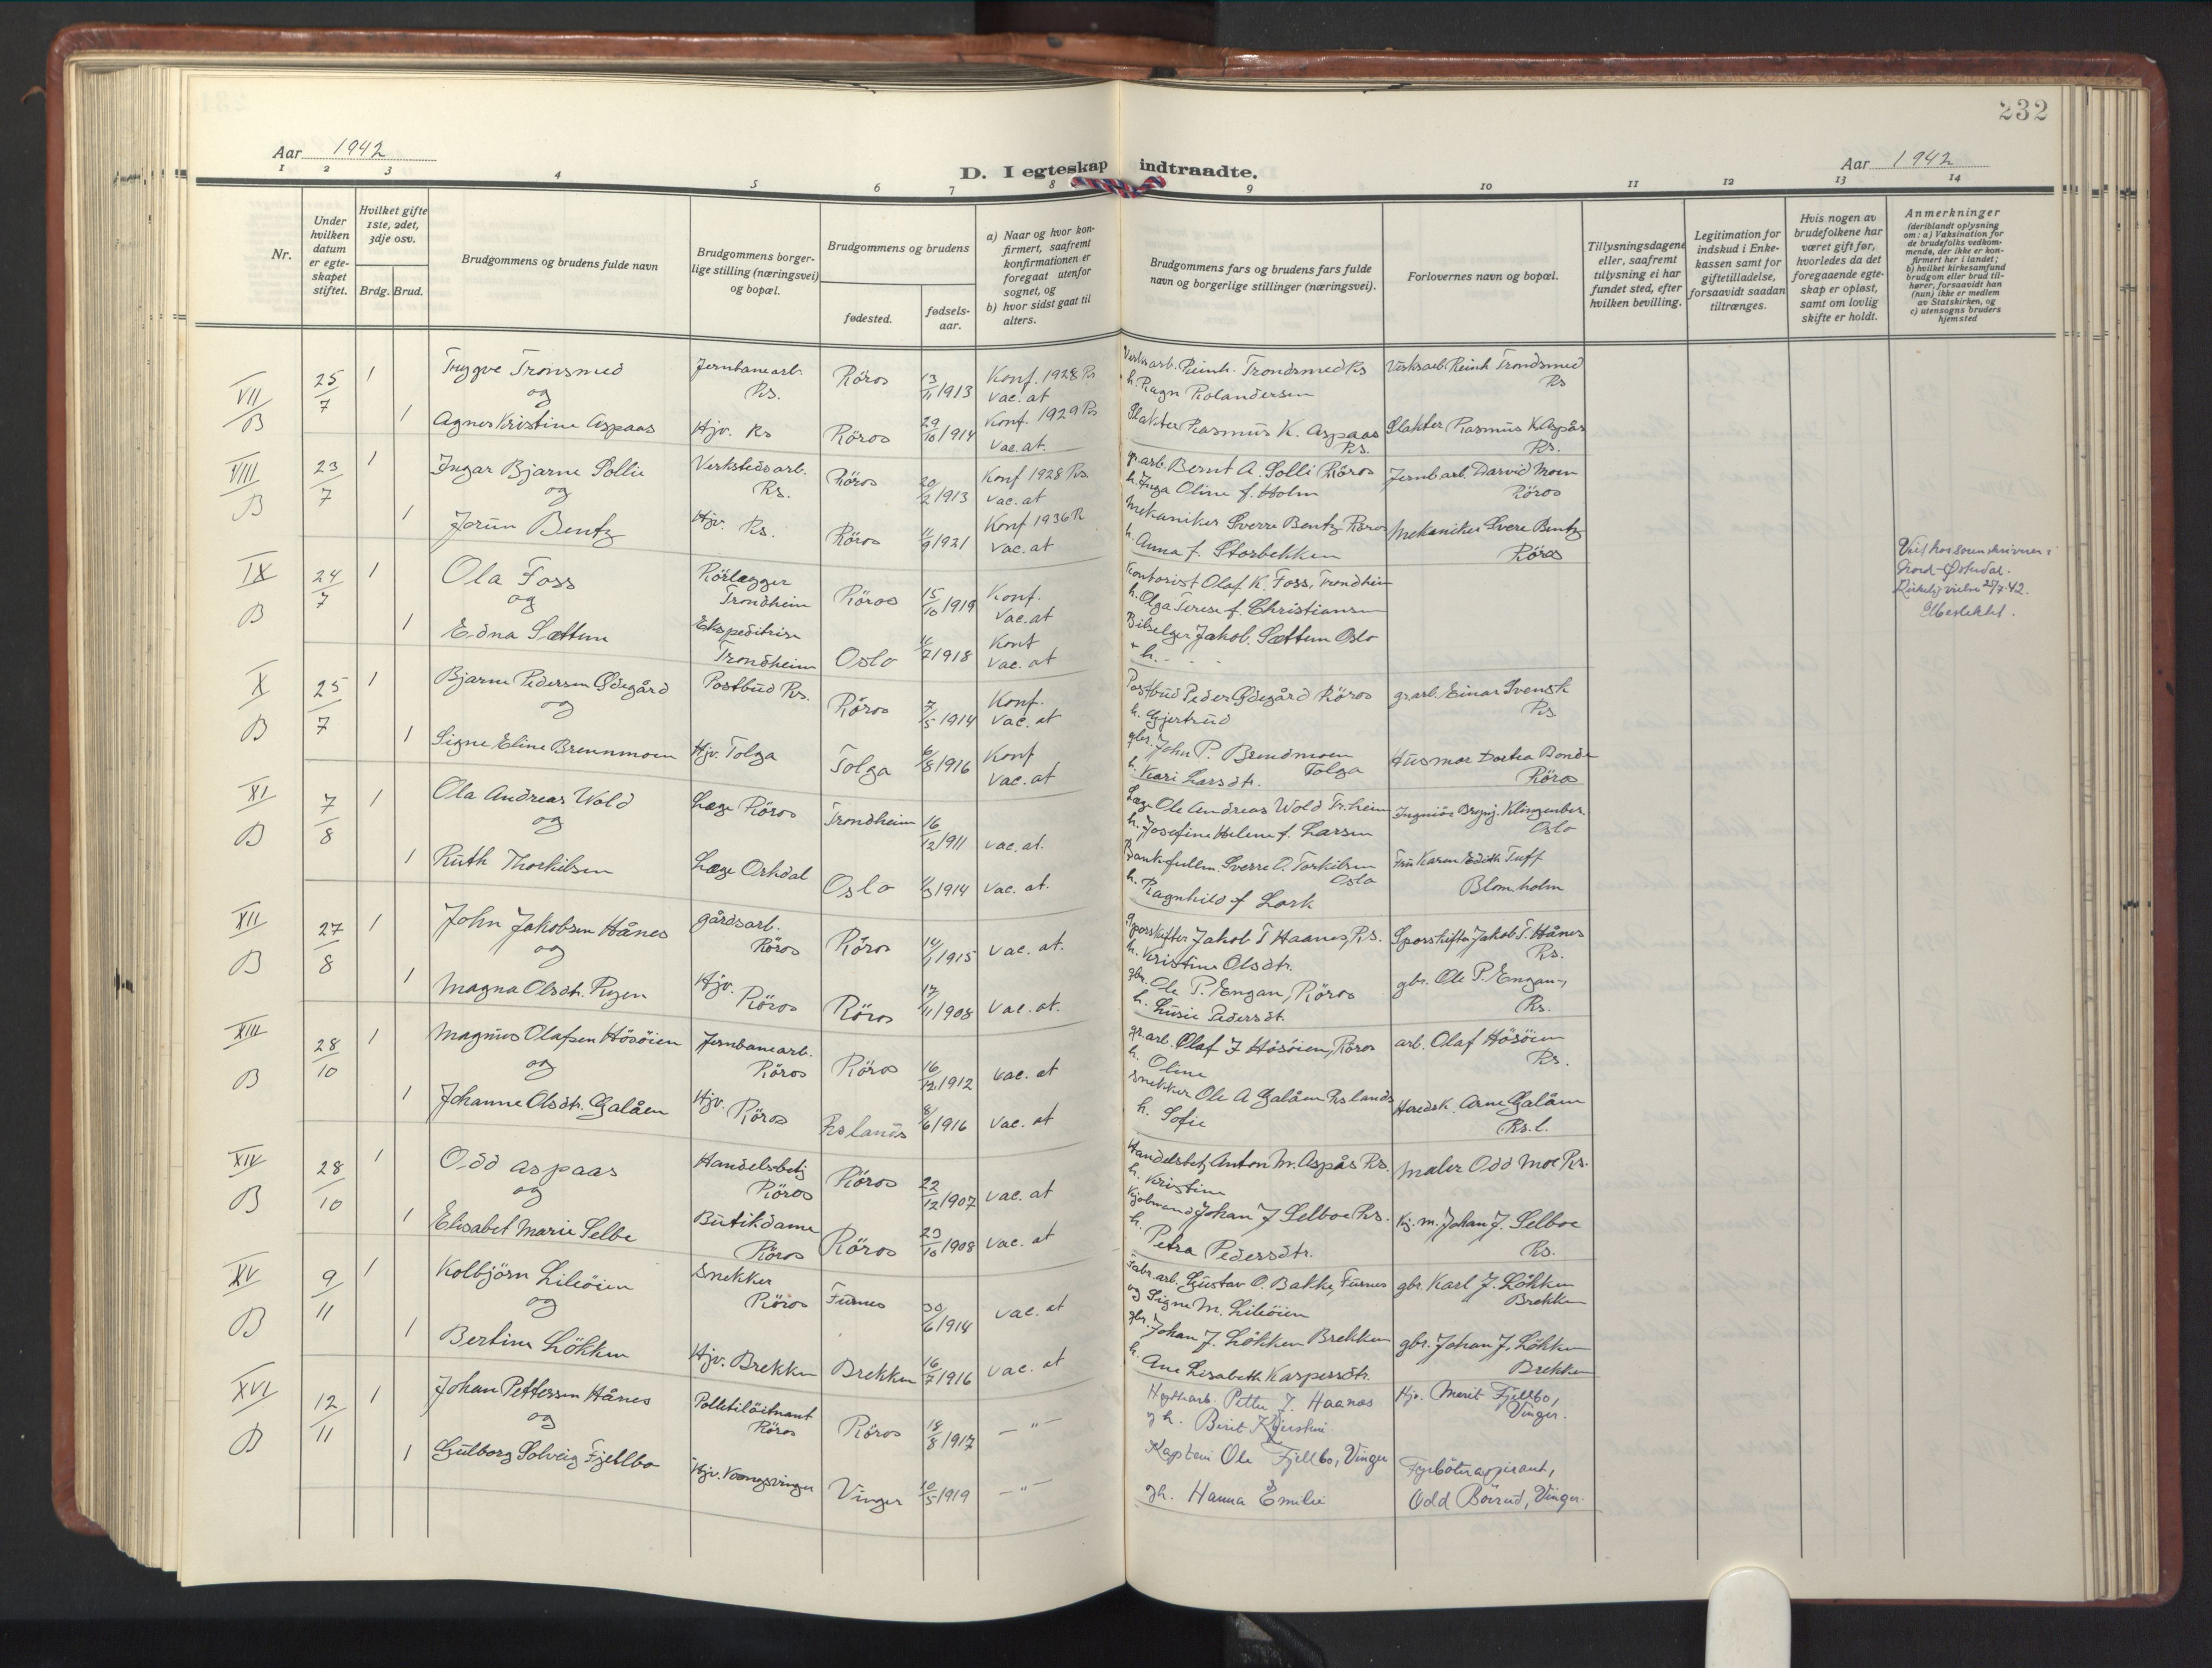 232
Aar 1942
D. I egteskap indtraadte.
Aar 1942
1 2 3 4 5 6 7 8 9 10 11 12 13 14
Nr.
Under hvilken datum er egteskapet stiftet.
Hvilket gifte 1ste, 2det, 3dje osv.
Brdg. Brud.
Brudgommens og brudens fulde navn
Brudgommens borgerlige stilling (næringsvei) og bopæl.
Brudgommens og brudens
fødested.
fødselsaar.
a) Naar og hvor konfirmert, saafremt konfirmationen er foregaat utenfor sognet, og
b) hvor sidst gaat til alters.
Brudgommens fars og brudens fars fulde navn og borgerlige stillinger (næringsvei).
Forlovernes navn og bopæl.
Tillysningsdagene eller, saafremt tillysning ei har fundet sted, efter hvilken bevilling.
Legitimation for indskud i Enkekassen samt for giftetilladelse, forsaavidt saadan tiltrænges.
Hvis nogen av brudefolkene har været gift før, hvorledes da det foregaaende egteskap er opløst, samt om lovlig skifte er holdt.
Anmerkninger
(deriblandt oplysning om: a) Vaksination for de brudefolks vedkommende, der ikke er konfirmert her i landet; b) hvilket kirkesamfund brudgom eller brud tilhører, forsaavidt han (hun) ikke er medlem av Statskirken, og c) utensogns bruders hjemsted
VII B 25/7 1 Trygve Tronsmed Jernbanearb. Rs. Röros 13/11 1913 Konf. 1928 Rs vac. at Verksarb. Reinh. Trondsmed Rs h. Ragn Rolandersen Verksarb. Reinh Trondsmed Rs
og
1 Agnes Kristine Aspaas Hjv. Rs Röros 29/10 1914 Konf. 1929 Rs vac. at. Slakter Rasmus K. Aspaas Rs. Slakter Rasmus K Aspås Rs.
VIII B 23/7 1 Ingar Bjarne Sollie Verkstedsarb. Rs. Röros 20/2 1913 Konf 1928 Rs vac. at gr.arb. Bernt A. Solli Röros h. Inga Oline f. Holm Jernb arb. Darvid Moen Röros
og
1 Jorun Bentz Hjv. Rs. Röros 11/9 1921 Konf 1936 R vac. at Mekaniker Sverre Bentz Röros h. Anna f. Storbekken Mekaniker Svere Bentz Röros
IX B 24/7 1 Ola Foss Rörlægger Trondheim Röros 15/10 1919 Konf. vac. at Kontorist Olaf K. Foss, Trondheim h. Olga Terese f. Christiansen
og
1 Edna Sættem Ekspeditrise Trondheim Oslo 7 1918 Konf vac. at Bilselger Jakob Sættem Oslo + h. - -
Viet hos sorenskriveren i
Nord-Østerdal.
Kirkelig vielse 25/7-42.
X B 25/7 1 Bjarne Pedersen Ødegård Postbud Rs. Röros 7/5 1914 Konf. vac. at Postbud Peder Ødegård Röros h. Gjertrud gr.arb. Einar Svensk Rs
og
1 Signe Eline Brennmoen Hjv. Tolga Tolga 6/8 1916 Konf vac. at gbr. John P. Brendmoen Tolga h. Kari Larsdtr. Husmor Dortea Bonde Röros
XI B 7/8 1 Ola Andreas Wold Læge Röros Trondheim 16/12 1911 vac. at. Læge Ole Andreas Wold Tr.heim h. Josefine Helene f. Larsen Ingeniör Brynj. Klingenber Oslo
og
1 Ruth Thorkilsen Læge Orkdal Oslo 3 1914 vac. at. Bankfullm. Sverre O. Torkilsen Oslo h. Ragnhild f Lork Fru Karen Edith Tuff Blomholm
XII B 27/8 1 John Jakobsen Hånes gårdsarb. Röros Röros 14/1 1915 vac. at. Sporskifter Jakob T Haanes, Rs. h. Kristine Olsdtr. Sporskifter Jakob T. Hånes Rs.
og
1 Magna Olsdtr. Ryen Hjv. Röros Röros 17/11 1908 vac. at. gbr. Ole P. Engan, Röros h. Lusie Pedersdt. gbr. Ole P. Engan, Rs.
XIII B 28/10 1 Magnus Olafsen Hösöien Jernbanearb. Röros Röros 16/12 1912 vac. at gr.arb. Olaf J Hösöien, Röros h. Oline arb. Olaf Hösöien Rs.
og
1 Johanne Olsdtr. Galåen Hjv. Röros Rs lands 8/6 1916 vac. at Snekker Ole A Galåen Rs lands h. Sofie Heredsk. Arne Galåen Rs. l.
XIV B 28/10 1 Odd Aspaas Handelsbetj Röros Röros 22/12 1907 vac. at Handelsbetj Anton M. Aspås Rs. h. Kristine Maler Odd Moe Rs.
og
1 Elisabet Marie Selbo Butikdame Röros Röros 23/10 1908 vac. at Kjöbmand Johan J Selboe Rs. h. Petra Pedersdtr. Kj. m. Johan J. Selboe Rs.
XV B 9/11 1 Kolbjörn Lileöien Snekker Röros Furnes 30/6 1914 vac. at Fabr.arb. Gustav O. Bakke, Furnes og Signe M. Lileöien gbr. Karl J. Lökken Brekken
og
1 Bertine Lökken Hjv. Brekken Brekken 16/7 1916 vac. at gbr. Johan J. Lökken Brekken h. Ane Lisabeth Kaspersdtr. gbr. Johan J. Lökken Brekken
XVI B 12/11 1 Johan Pettersen Hånes Politilöitnant Röros Röros 18/8 1917 — " — Petter J. Haanæs g h. Berit Kjerstine Hjv. Marit Fjellbo, Vinger.
og
1 Gulborg Solveig Fjellbo Hjv. Kongsvinger Vinger 10/5 1919 — " — Kaptein Ole Fjellbo, Vinger gh. Hanna Emilie Fyrböteraspirant, Odd Börud, Vinger.